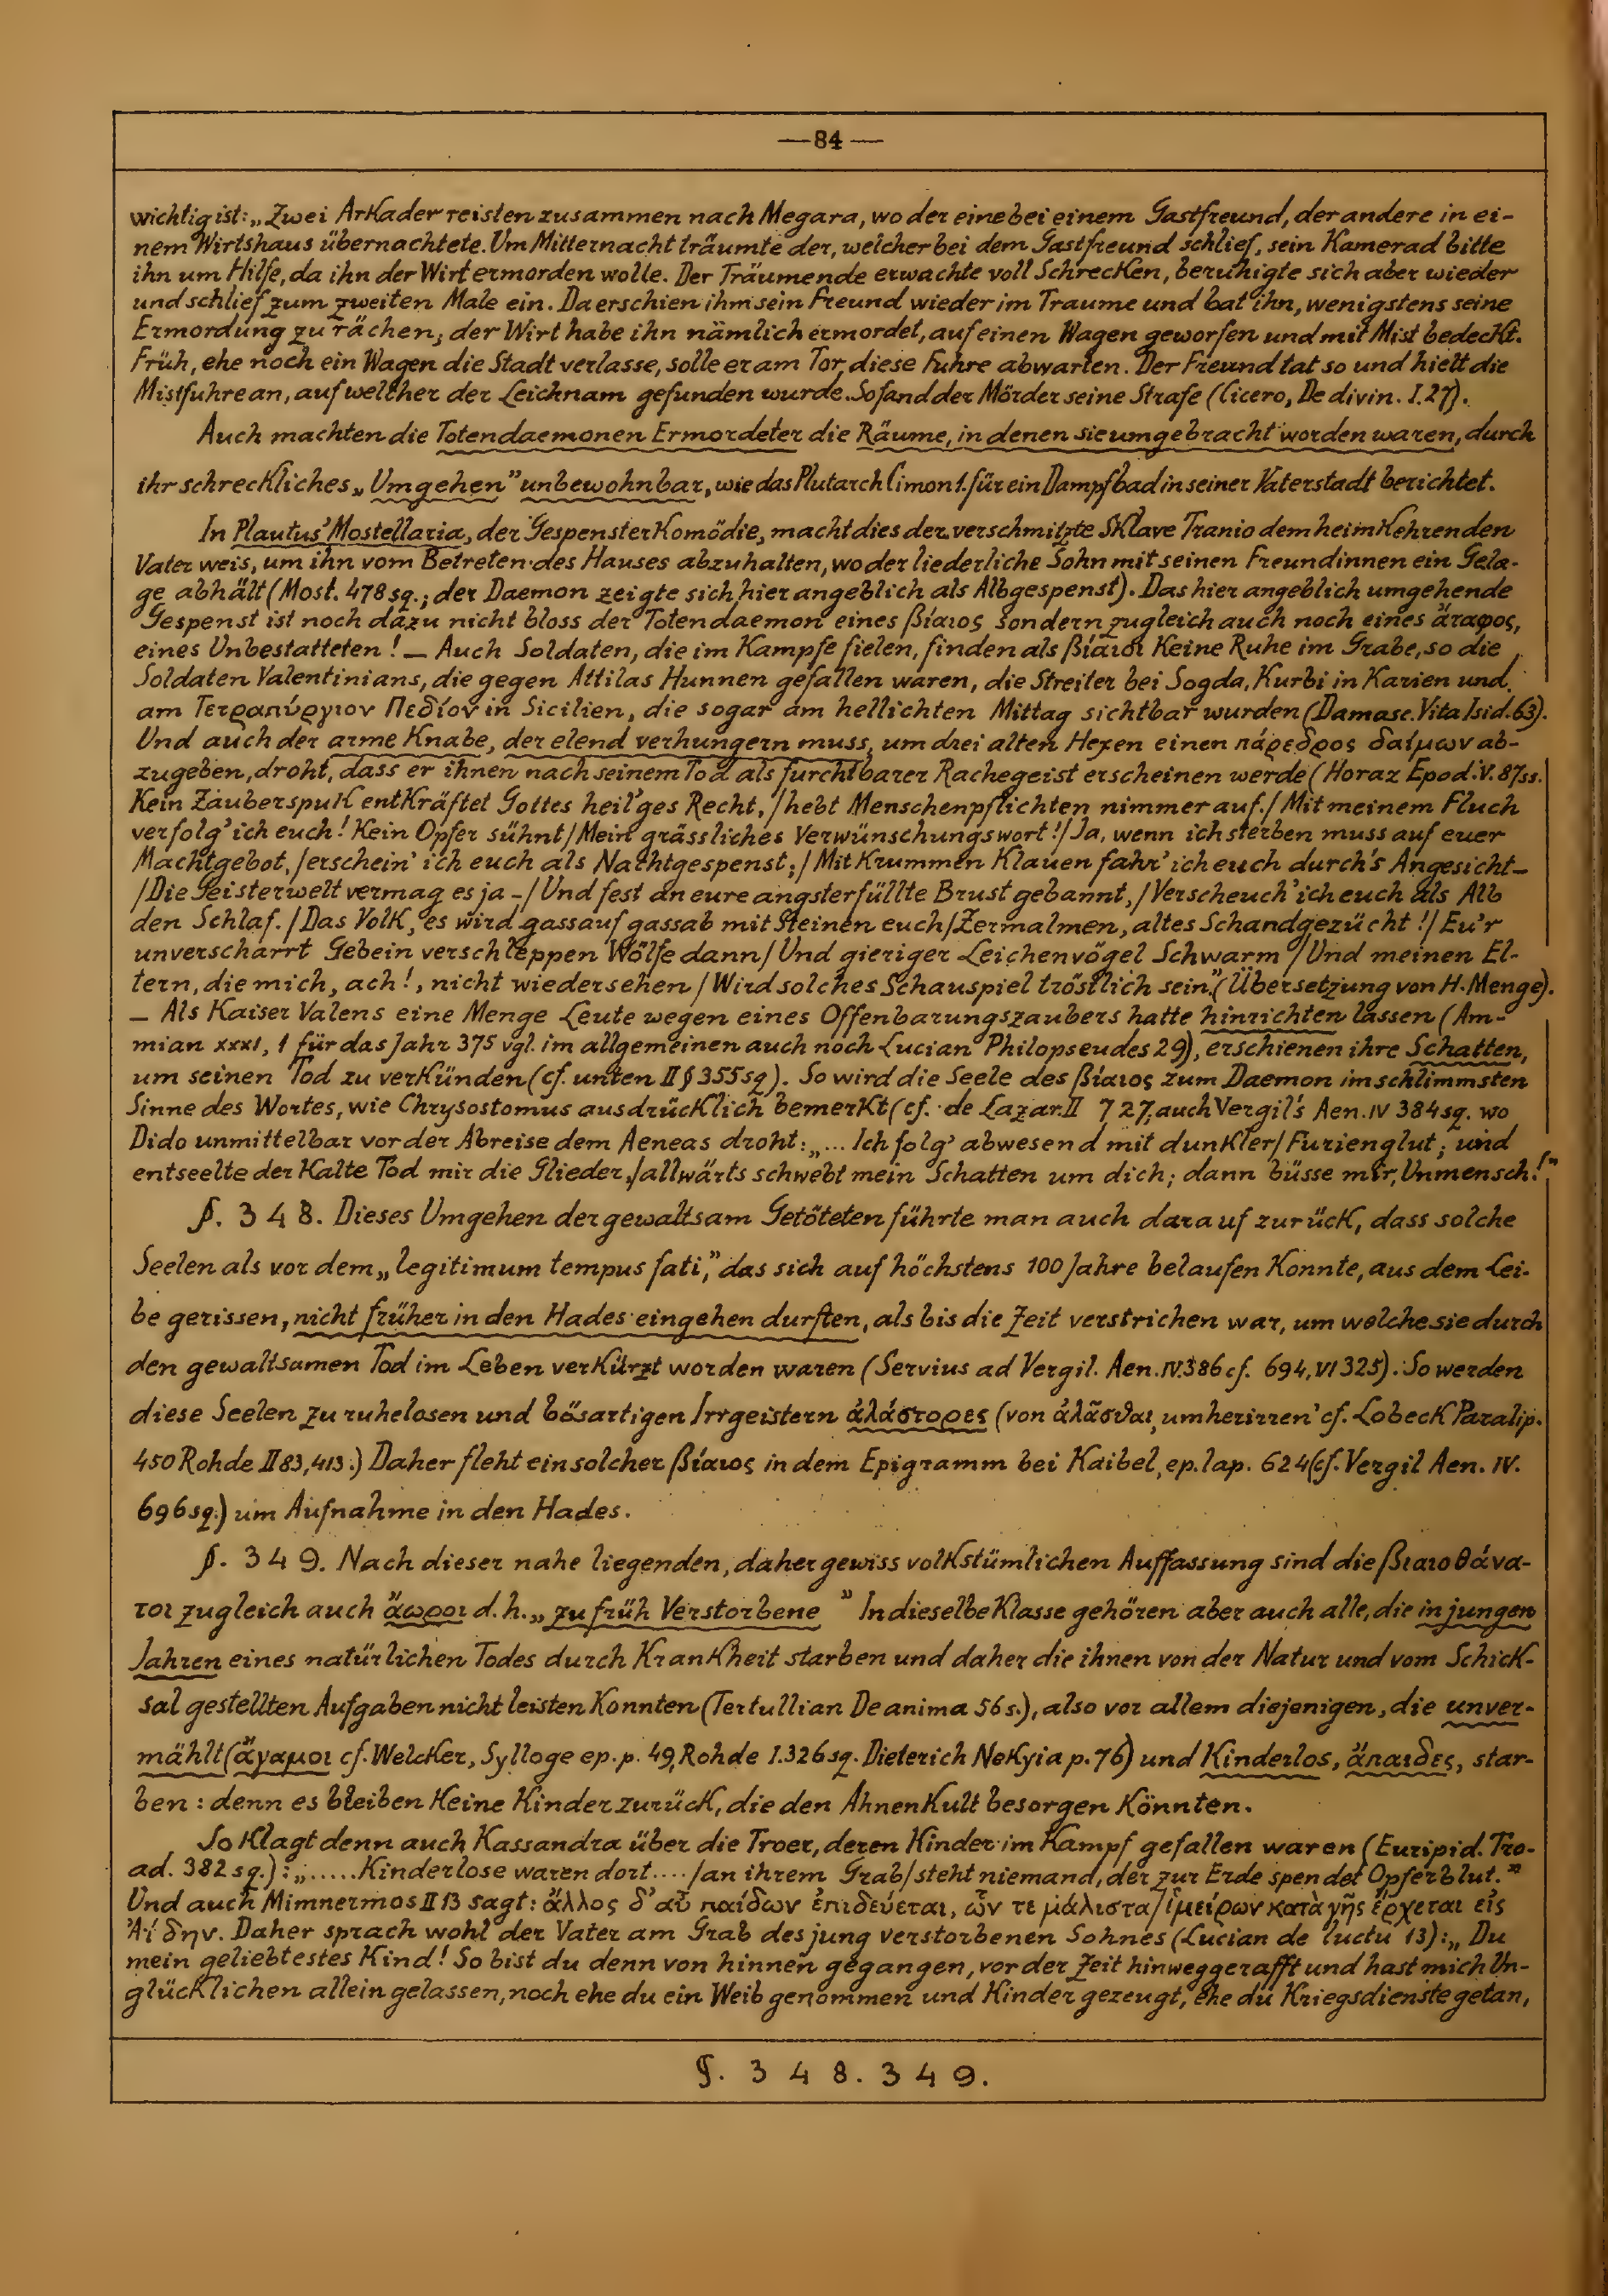 —84—
wichtig ist: „Zwei Arkader reisten zusammen nach Megara, wo der eine bei einem Gastfreund, der andere in ei-
nem Wirtshaus übernachtete. Um Mitternacht träumte der, welcher bei dem Gastfreund schlief, sein Kamerad bitte
ihn um Hilfe, da ihn der Wirt ermorden wolle. Der Träumende erwachte voll Schrecken, beruhigte sich aber wieder
und schlief zum zweiten Male ein. Da erschien ihm sein Freund wieder im Traume und bat ihn, wenigstens seine
Ermordung zu rächen; der Wirt habe ihn nämlich ermordet, auf einen Wagen geworfen und mit Mist bedeckt.
Früh, ehe noch ein Wagen die Stadt verlasse, solle er am Tor, diese Fuhre abwarten. Der Freund tat so und hielt die
Mistfuhre an, auf welcher der Leichnam gefunden wurde. So fand der Mörder seine Strafe (Cicero, De divin. I.27).
Auch machten die Totendaemonen Ermordeter die Räume, in denen sie umgebracht worden waren, durch
ihr schreckliches „Umgehen" unbewohnbar, wie das Plutarch Cimon 1. für ein Dampfbad in seiner Vaterstadt berichtet.
In Plautus' Mostellaria, der Gespensterkomödie, macht dies der verschmitzte Sklave Tranio dem heimkehrenden
Vater weis, um ihn vom Betreten des Hauses abzuhalten, wo der liederliche Sohn mit seinen Freundinnen ein Gela-
ge abhält (Most. 478 sq.; der Daemon zeigte sich hier angeblich als Albgespenst). Das hier angeblich umgehende
Gespenst ist noch dazu nicht bloss der Totendaemon eines βίαιος sondern zugleich auch noch eines ἄταφος,
eines Unbestatteten! — Auch Soldaten, die im Kampfe fielen, finden als βίαιοι keine Ruhe im Grabe, so die
Soldaten Valentinians, die gegen Attilas Hunnen gefallen waren, die Streiter bei Sogda, Kurbi in Karien und
am Τετραπύργιον Πεδίον in Sicilien, die sogar am hellichten Mittag sichtbar wurden (Damasc. Vita Isid. 63).
Und auch der arme Knabe, der elend verhungern muss, um drei alten Hexen einen πάρεδρος δαίμων ab-
zugeben, droht, dass er ihnen nach seinem Tod als furchtbarer Rachegeist erscheinen werde (Horaz Epod. V. 87ss.
Kein Zauberspuk entkräftet Gottes heil'ges Recht, / hebt Menschenpflichten nimmer auf. / Mit meinem Fluch
verfolg' ich euch! Kein Opfer sühnt / Mein grässliches Verwünschungswort! / Ja, wenn ich sterben muss auf euer
Machtgebot, / erschein' ich euch als Nachtgespenst; / Mit krummen Klauen fahr' ich euch durch's Angesicht—
/ Die Geisterwelt vermag es ja - / Und fest an eure angsterfüllte Brust gebannt, / Verscheuch' ich euch als Alb
den Schlaf. / Das Volk, es wird gassauf gassab mit Steinen euch / Zermalmen, altes Schandgezücht! / Eu'r
unverscharrt Gebein verschleppen Wölfe dann / Und gieriger Leichenvögel Schwarm / Und meinen El-
tern, die mich, ach!, nicht wiedersehen / Wird solches Schauspiel tröstlich sein." (Übersetzung von H. Menge).
— Als Kaiser Valens eine Menge Leute wegen eines Offenbarungszaubers hatte hinrichten lassen (Am-
mian XXXI, 1 für das Jahr 375 vgl. im allgemeinen auch noch Lucian Philopseudes 29), erschienen ihre Schatten,
um seinen Tod zu verkünden (cf. unten II § 355 sq). So wird die Seele des βίαιος zum Daemon im schlimmsten
Sinne des Wortes, wie Chrysostomus ausdrücklich bemerkt (cf. de Lazar. II 727, auch Vergil's Aen. IV 384 sq. wo
Dido unmittelbar vor der Abreise dem Aeneas droht: „... Ich folg' abwesend mit dunkler / Furienglut; und
entseelte der kalte Tod mir die Glieder, / allwärts schwebt mein Schatten um dich; dann büsse mir, Unmensch!"
§. 348. Dieses Umgehen der gewaltsam Getöteten führte man auch darauf zurück, dass solche
Seelen als vor dem „legitimum tempus fati," das sich auf höchstens 100 Jahre belaufen konnte, aus dem Lei-
be gerissen, nicht früher in den Hades eingehen durften, als bis die Zeit verstrichen war, um welche sie durch
den gewaltsamen Tod im Leben verkürzt worden waren (Servius ad Vergil. Aen. IV. 386 cf. 694, VI 325). So werden
diese Seelen zu ruhelosen und bösartigen Irrgeistern ἀλάστορες (von ἀλᾶσθαι, umherirren' cf. Lobeck Paralip.
450 Rohde II 83, 413.) Daher fleht ein solcher βίαιος in dem Epigramm bei Kaibel, ep. lap. 624 (cf. Vergil Aen. IV.
696 sq.) um Aufnahme in den Hades.
§. 349. Nach dieser nahe liegenden, daher gewiss volkstümlichen Auffassung sind die βιαιοθάνα-
τοι zugleich auch ἄωροι d.h. „zu früh Verstorbene" In dieselbe Klasse gehören aber auch alle, die in jungen
Jahren eines natürlichen Todes durch Krankheit starben und daher die ihnen von der Natur und vom Schick-
sal gestellten Aufgaben nicht leisten konnten (Tertullian De anima 56 s.), also vor allem diejenigen, die unver-
mählt (ἄγαμοι cf. Welcker, Sylloge ep. p. 49, Rohde I. 326 sq. Dieterich Nekyia p. 76) und kinderlos, ἄπαιδες, star-
ben: denn es bleiben keine Kinder zurück, die den Ahnenkult besorgen könnten.
So klagt denn auch Kassandra über die Troer, deren Kinder im Kampf gefallen waren (Euripid. Tro-
ad. 382 sq.): „..... Kinderlose waren dort.... / an ihrem Grab / steht niemand, der zur Erde spendet Opferblut."
Und auch Mimnermos II 13 sagt: ἄλλος δ' αὖ παίδων ἐπιδεύεται, ὧν τε μάλιστα / ἱμείρων κατὰ γῆς ἔρχεται εἰς
Ἀΐδην. Daher sprach wohl der Vater am Grab des jung verstorbenen Sohnes (Lucian de luctu 13): „Du
mein geliebtestes Kind! So bist du denn von hinnen gegangen, vor der Zeit hinweggerafft und hast mich Un-
glücklichen allein gelassen, noch ehe du ein Weib genommen und Kinder gezeugt, ehe du Kriegsdienste getan,
§. 348. 349.